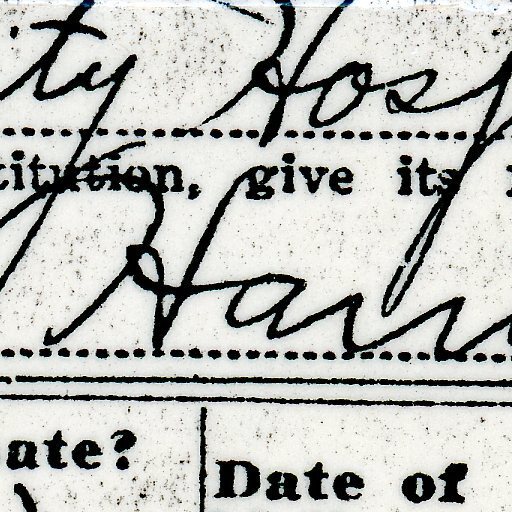 ity Hosp
titution, give its
Har
ate?
Date of